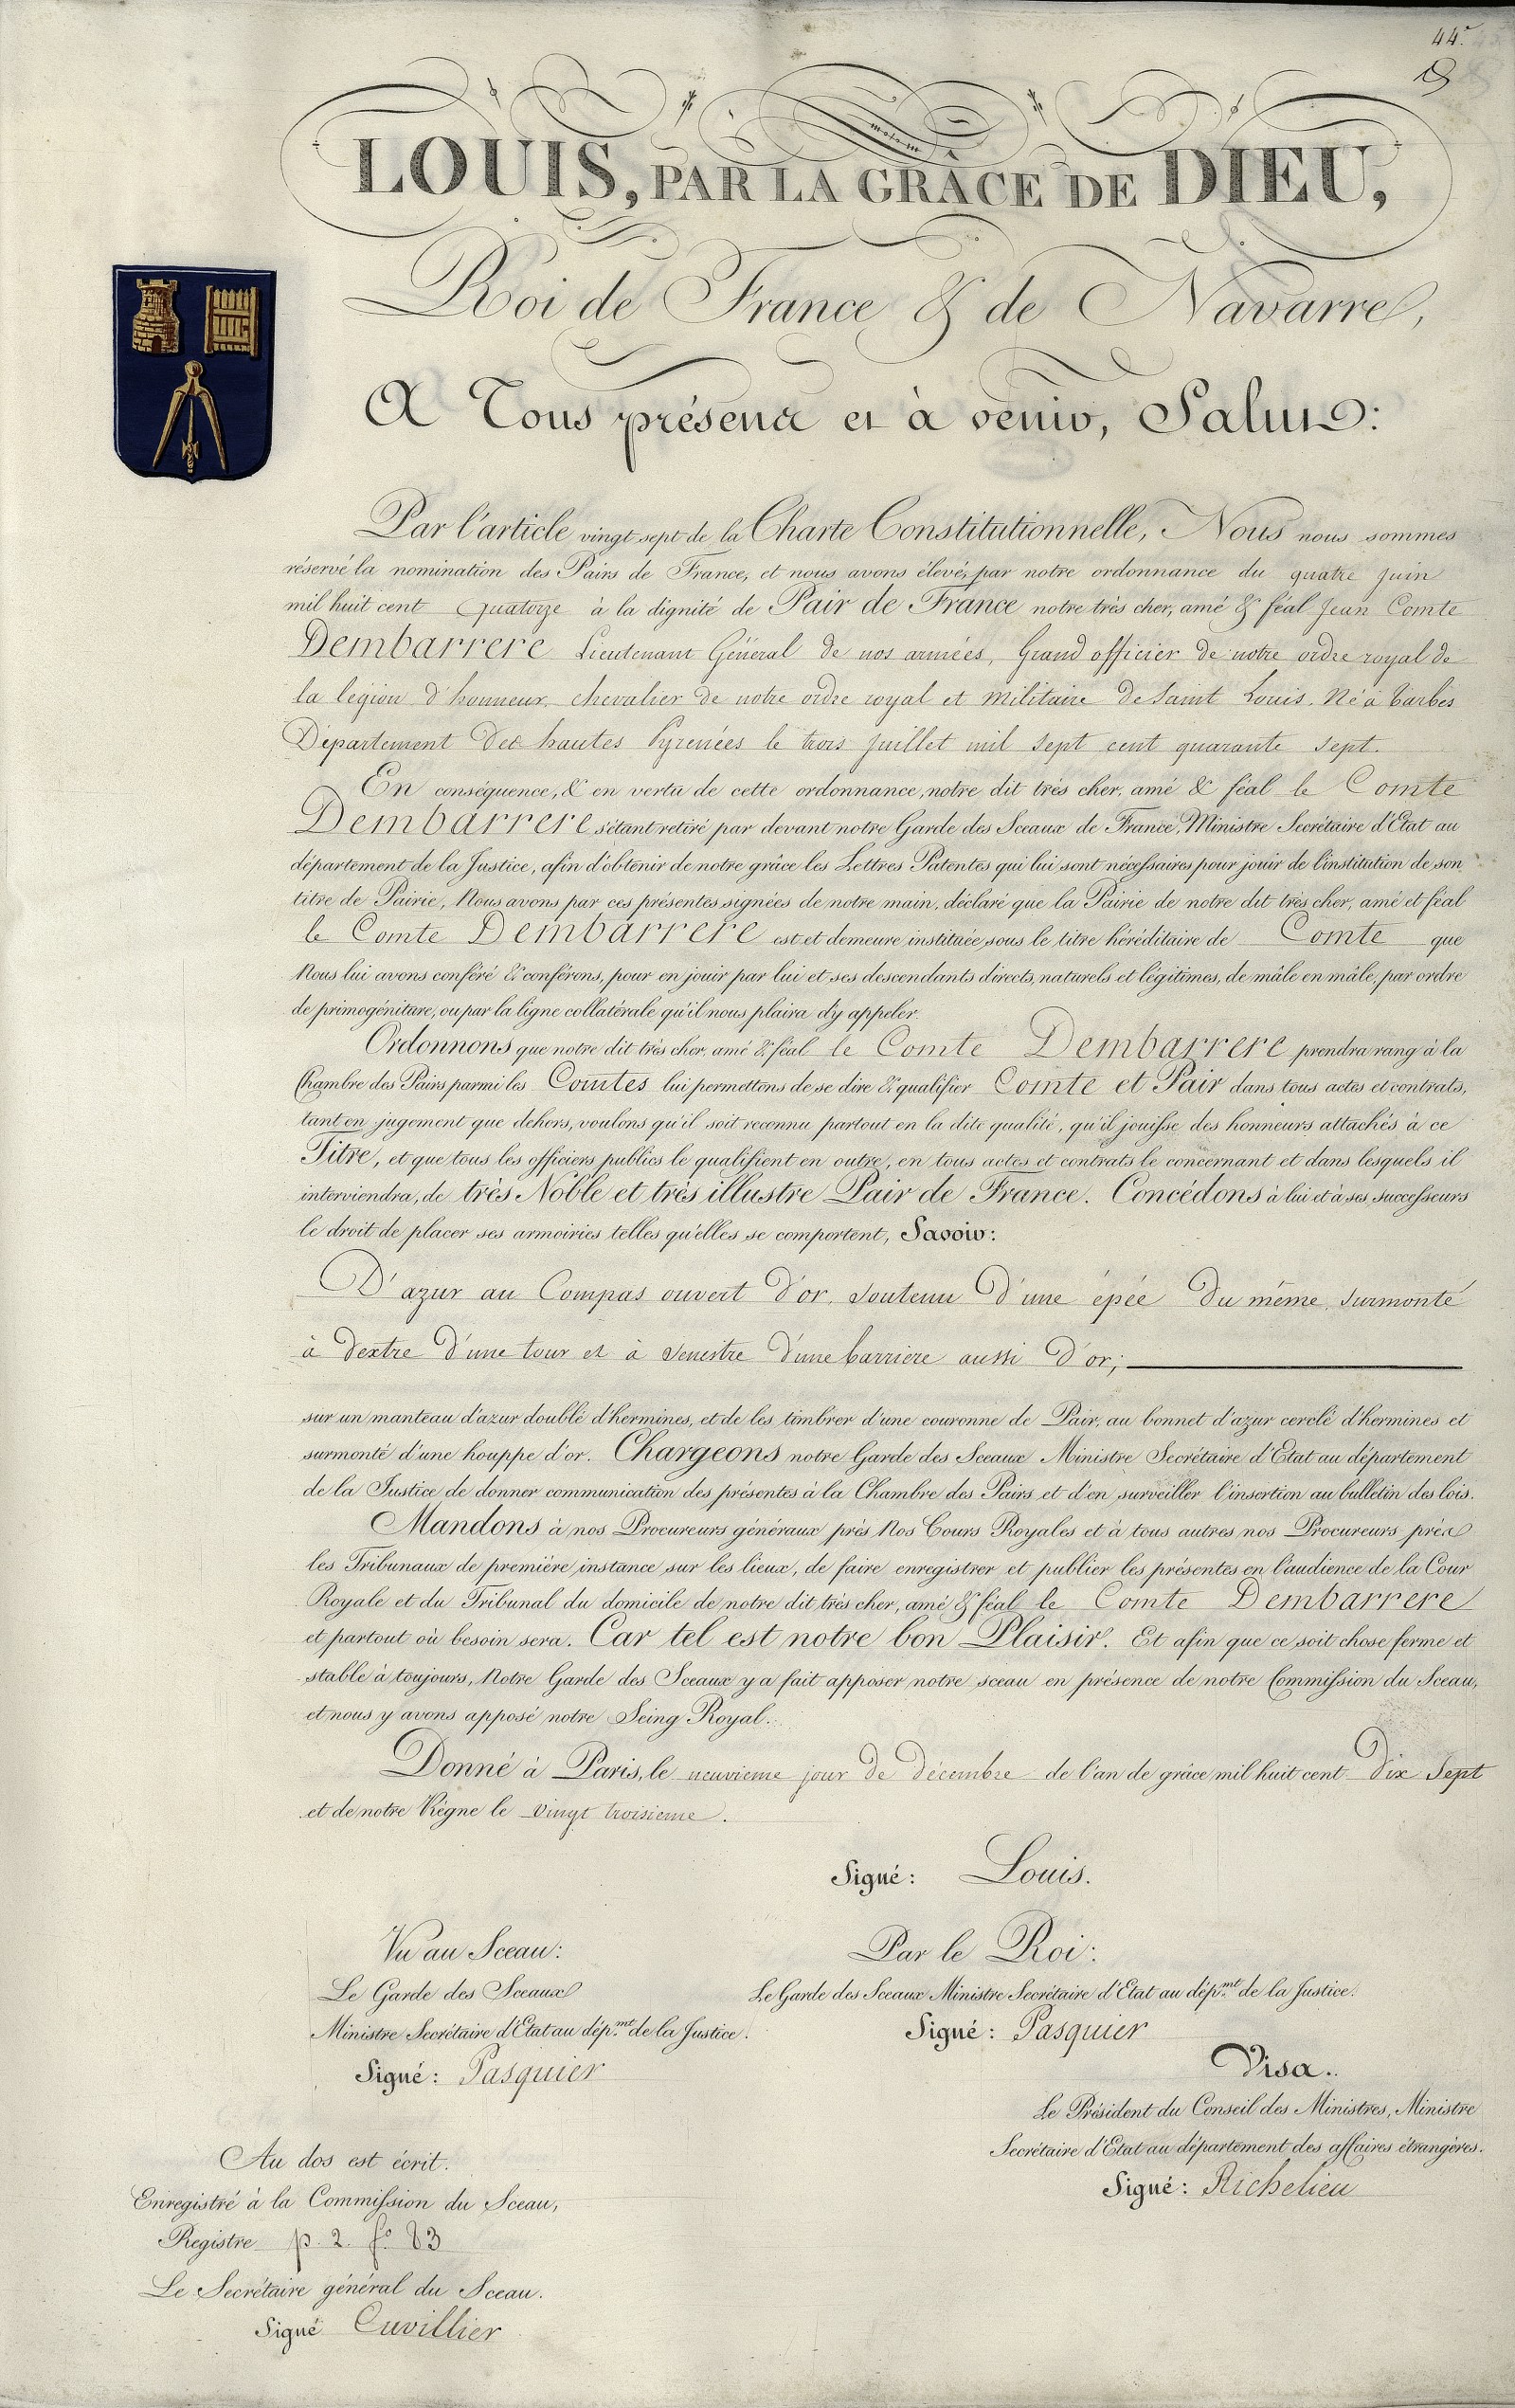 44.e
LOUIS, PAR LA GRÂCE DE DIEU,
Roi de France & de Navarre,
A Tous présens et à venir, Salut:
Par l'article vingt sept de la Charte Constitutionnelle, Nous nous sommes
réservé la nomination des Pairs de France, et nous avons élevé, par notre ordonnance du quatre juin
mil huit cent Quatorze à la dignité de Pair de France notre très cher, amé & féal Jean Comte
Dembarrere Lieutenant Général de nos armées, Grand officier de notre ordre royal de
la légion d'honneur, chevalier de notre ordre royal et militaire de Saint Louis. Né à Tarbes
Département des hautes Pyrenées le trois juillet mil sept cent quarante sept.
En conséquence, & en vertu de cette ordonnance, notre dit très cher, amé & féal le Comte
Dembarrere s'étant retiré par devant notre Garde des Sceaux de France, Ministre Secrétaire d'Etat au
département de la Justice, afin d'obtenir de notre grâce les Lettres Patentes qui lui sont nécessaires pour jouir de l'institution de son
titre de Pairie, Nous avons par ces présentes signées de notre main, déclaré que la Pairie de notre dit très cher, amé et féal
le Comte Dembarrere est et demeure instituée sous le titre héréditaire de Comte que
Nous lui avons conféré & conférons, pour en jouir par lui et ses descendants directs, naturels et légitimes, de mâle en mâle, par ordre
de primogéniture, ou par la ligne collatérale qu'il nous plaira d'y appeler.
Ordonnons que notre dit très cher, amé & féal le Comte Dembarrere prendra rang à la
Chambre des Pairs parmi les Comtes lui permettons de se dire & qualifier Comte et Pair dans tous actes et contrats,
tant en jugement que dehors, voulons qu'il soit reconnu partout en la dite qualité, qu'il jouisse des honneurs attachés à ce
Titre, et que tous les officiers publics le qualifient en outre, en tous actes et contrats le concernant et dans lesquels il
interviendra, de très Noble et très illustre Pair de France. Concédons à lui et à ses successeurs
le droit de placer ses armoiries telles qu'elles se comportent, Savoir:
D'azur au Compas ouvert d'or, soutenu d'une épée du même, surmonté
à dextre d'une tour et à senestre d'une barrière aussi d'or;
sur un manteau d'azur doublé d'hermines, et de les timbrer d'une couronne de Pair, au bonnet d'azur cerclé d'hermines et
surmonté d'une houppe d'or. Chargeons notre Garde des Sceaux Ministre Secrétaire d'Etat au département
de la Justice de donner communication des présentes à la Chambre des Pairs et d'en surveiller l'insertion au bulletin des lois.
Mandons à nos Procureurs généraux près Nos Cours Royales et à tous autres nos Procureurs près
les Tribunaux de première instance sur les lieux, de faire enregistrer et publier les présentes en l'audience de la Cour
Royale et du Tribunal du domicile de notre dit très cher, amé & féal le Comte Dembarrere
et partout où besoin sera. Car tel est notre bon Plaisir. Et afin que ce soit chose ferme et
stable à toujours, Notre Garde des Sceaux y a fait apposer notre sceau en présence de notre Commission du Sceau,
et nous y avons apposé notre Seing Royal.
Donné à Paris, le neuvieme jour de décembre de l'an de grâce mil huit cent dix Sept
et de notre Règne le vingt troisieme.
Signé: Louis.
Vu au Sceau:
Le Garde des Sceaux
Ministre Secrétaire d'Etat au dép.mt de la Justice.
Signé: Pasquier
Par le Roi:
Le Garde des Sceaux Ministre Secrétaire d'Etat au dép.mt de la Justice.
Signé: Pasquier
Visa.
Le Président du Conseil des Ministres, Ministre
Secrétaire d'Etat au département des affaires étrangères.
Signé: Richelieu
Au dos est écrit.
Enregistré à la Commission du Sceau,
Registre p. 2. f.o 83
Le Secrétaire général du Sceau.
Signé Cuvillier